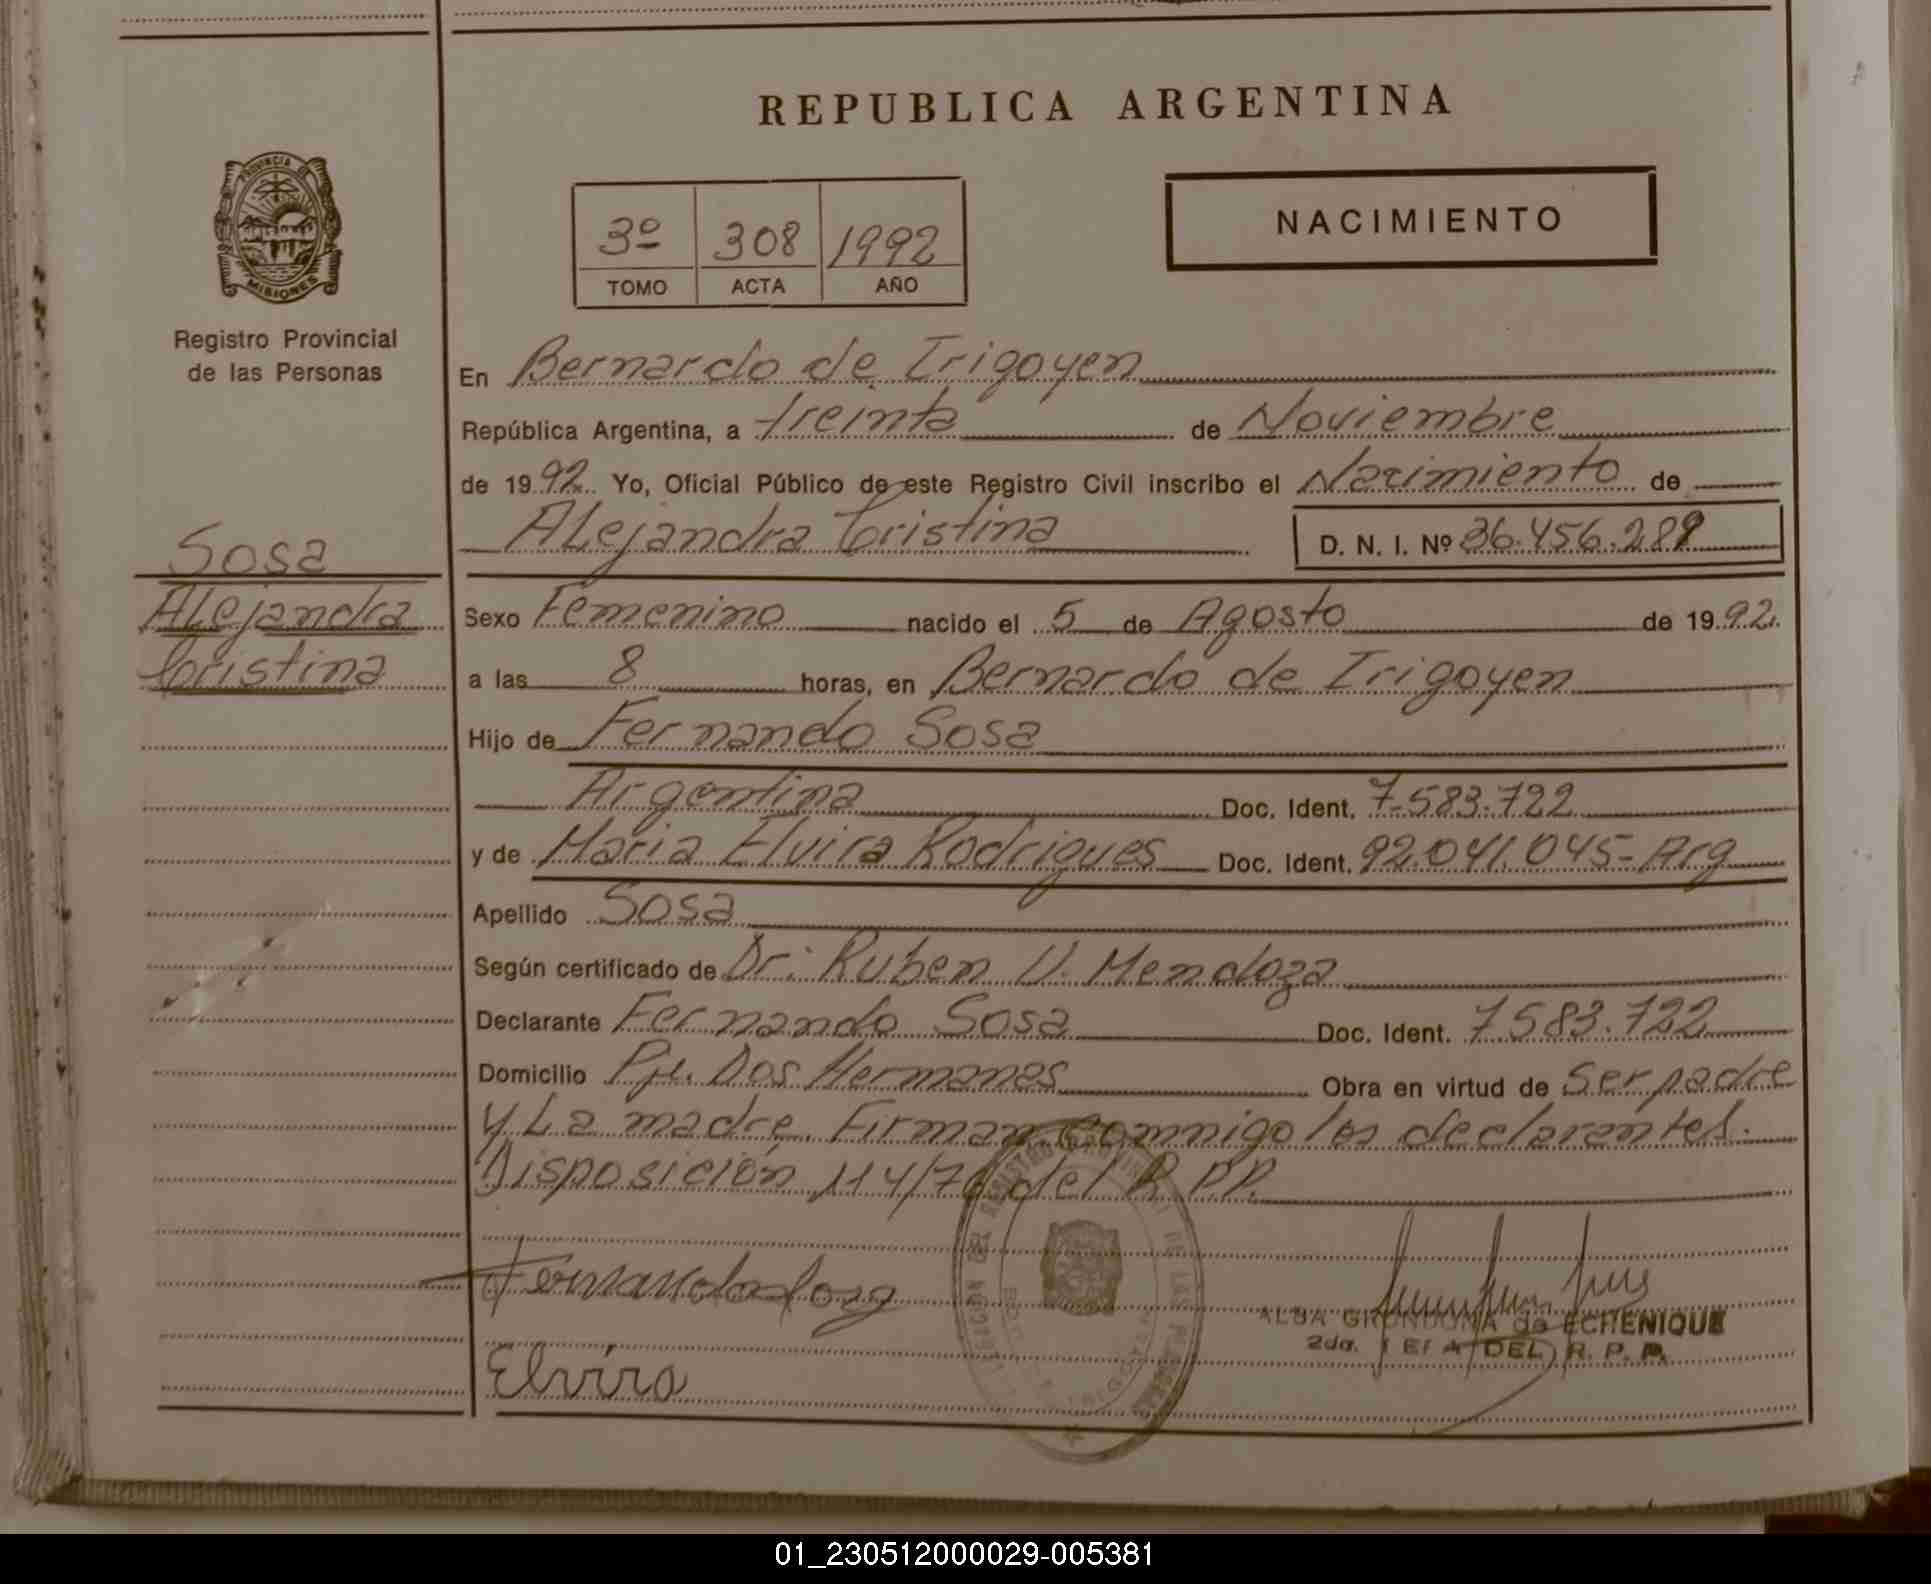 REPUBLICA ARGENTINA
PROVINCIA
MISIONES
Registro Provincial
de las Personas
3º 308 1992
TOMO ACTA AÑO
NACIMIENTO
En Bernardo de Irigoyen
República Argentina, a treinta de Noviembre
de 1992. Yo, Oficial Público de este Registro Civil inscribo el Nacimiento de
ALejandra Cristina D. N. I. Nº 36.456.289
Sosa
ALejandra
Cristina
Sexo Femenino nacido el 5 de Agosto de 1992.
a las 8 horas, en Bernardo de Irigoyen
Hijo de Fernando Sosa
Argentina Doc. Ident. 7.583.722
y de Maria Elvira Rodrigues Doc. Ident. 92.041.045-Arg
Apellido Sosa
Según certificado de Dr: Ruben V. Mendoza
Declarante Fernando Sosa Doc. Ident. 7583.722
Domicilio Pje. Dos Hermanas Obra en virtud de Ser padre
y La madre. Firman commigo los declarantes.
Disposición 114/76 del R.P.P.
Fernando Sosa
Elvira
ALBA GRONDONA de ECHENIQUE
2da. DEL R. P. P.
01_230512000029-005381